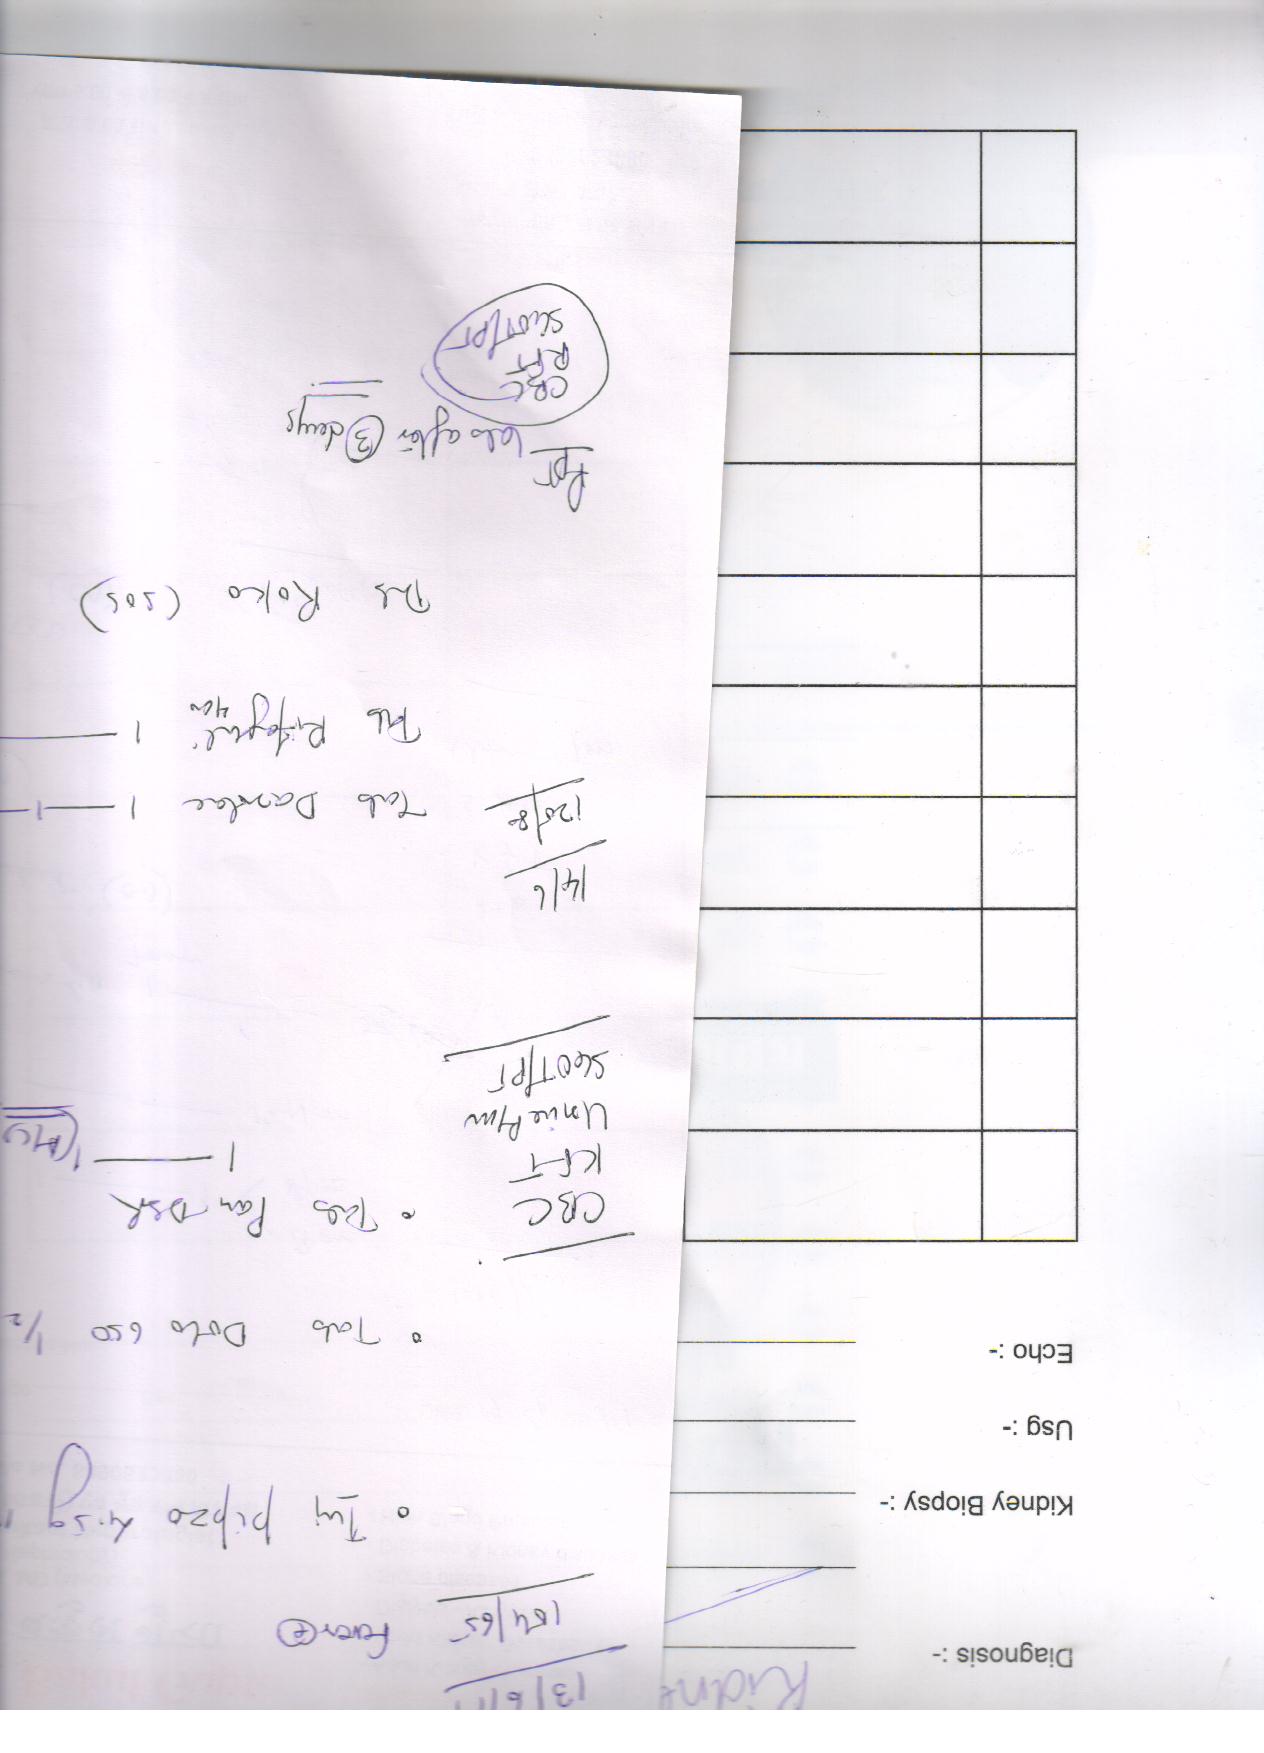 Diagnosis :-
Kidney Biopsy :-
Usg :-
Echo :-
13/6/1
104/65 Fever +
• Inj pipzo 4.5g
• Tab Dolo 650 1/2
• Tab Pan DSR
1 — 1
CBC
KFT
Urine R/m
SGOT/PT
14/6
120/8
Tab Darolac 1 — 1 —
Tab 400 1 —
Tab Roko (SOS)
Rpt labs after 3 days
CBC
RFT
SGOT/PT